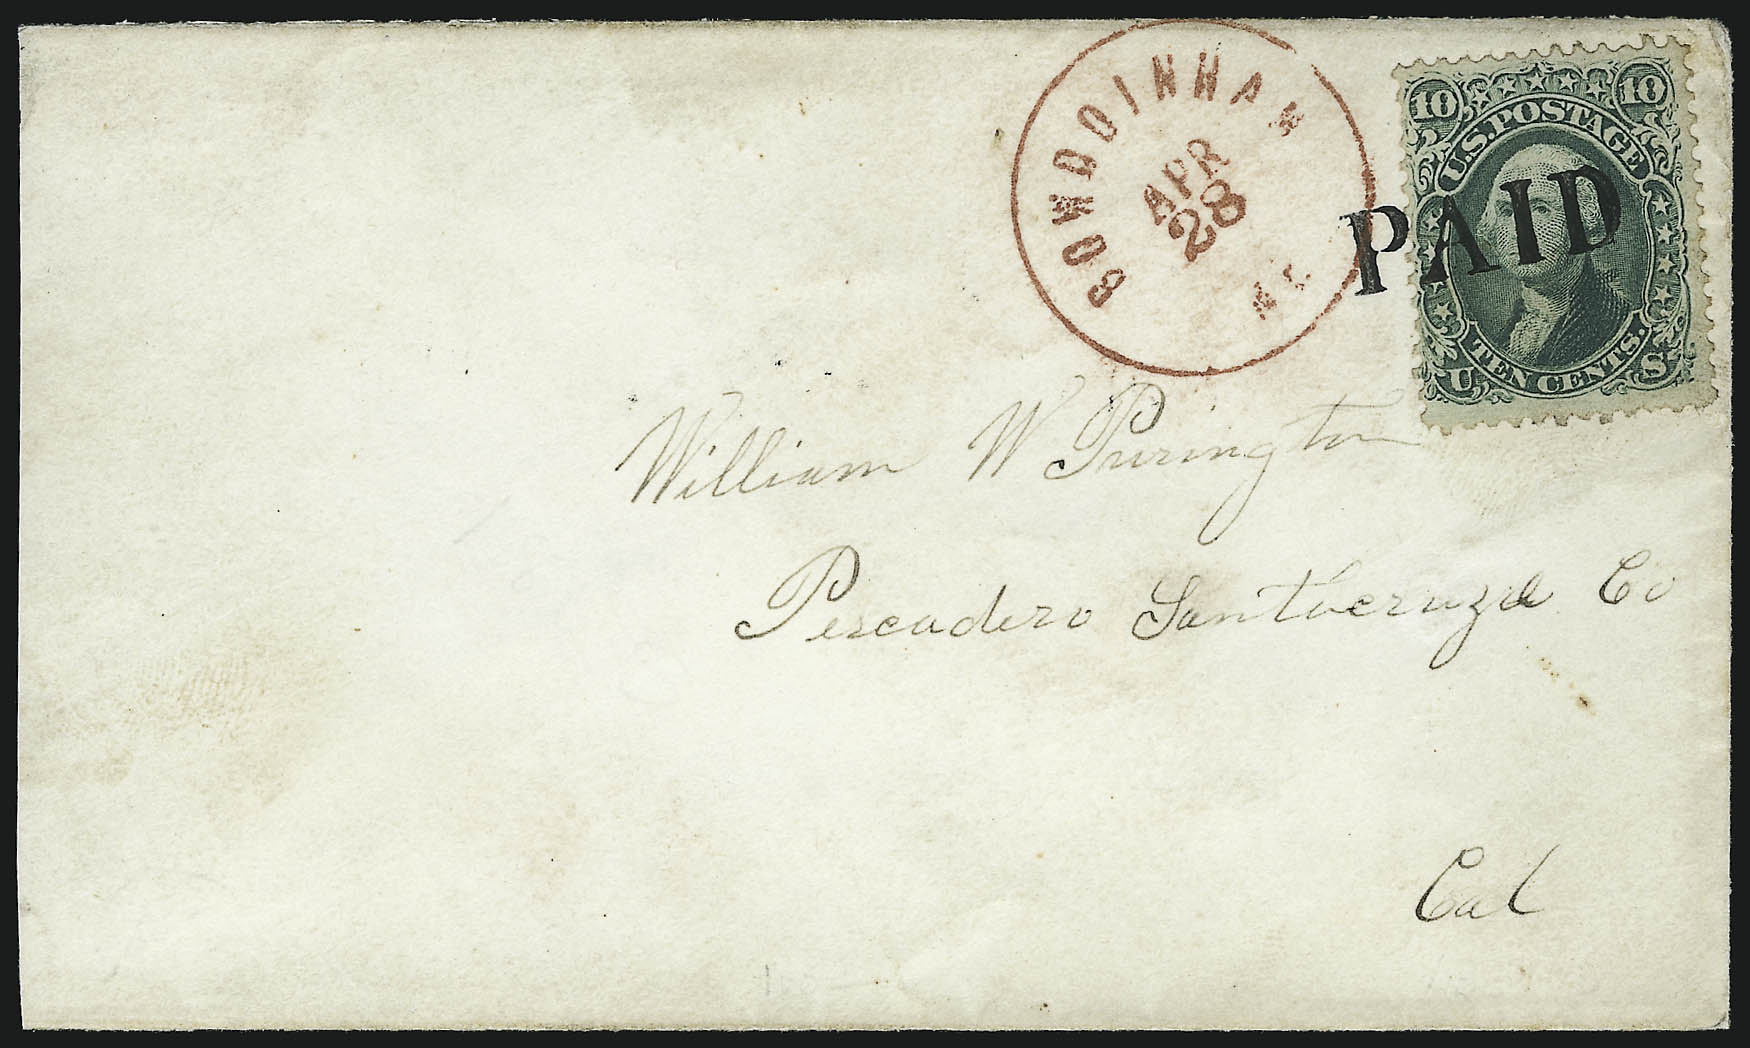 BOWDOINHAM
ME
APR
28
10 10
U.S. POSTAGE
PAID
TEN CENTS.
U S
William W Purington
Pescadero Santacruze Co
Cal